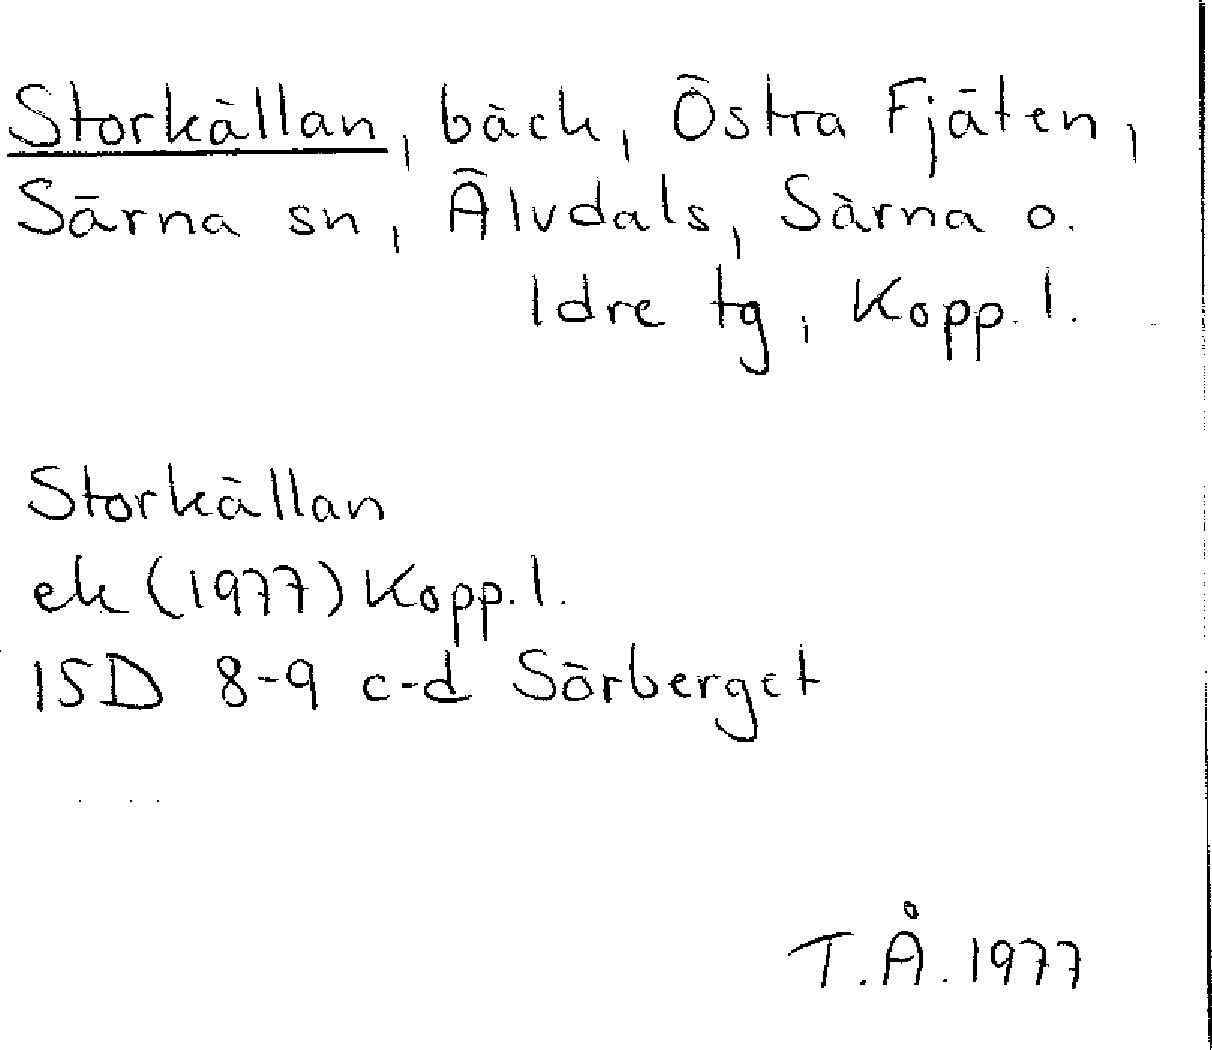 Storkällan, bäck, Östra Fjäten,
Särna sn, Älvdals, Särna o.
Idre tg, Kopp. l.
Storkällan
ek (1977) Kopp. l.
15D 8-9 c-d Sörberget
T.Å. 1977